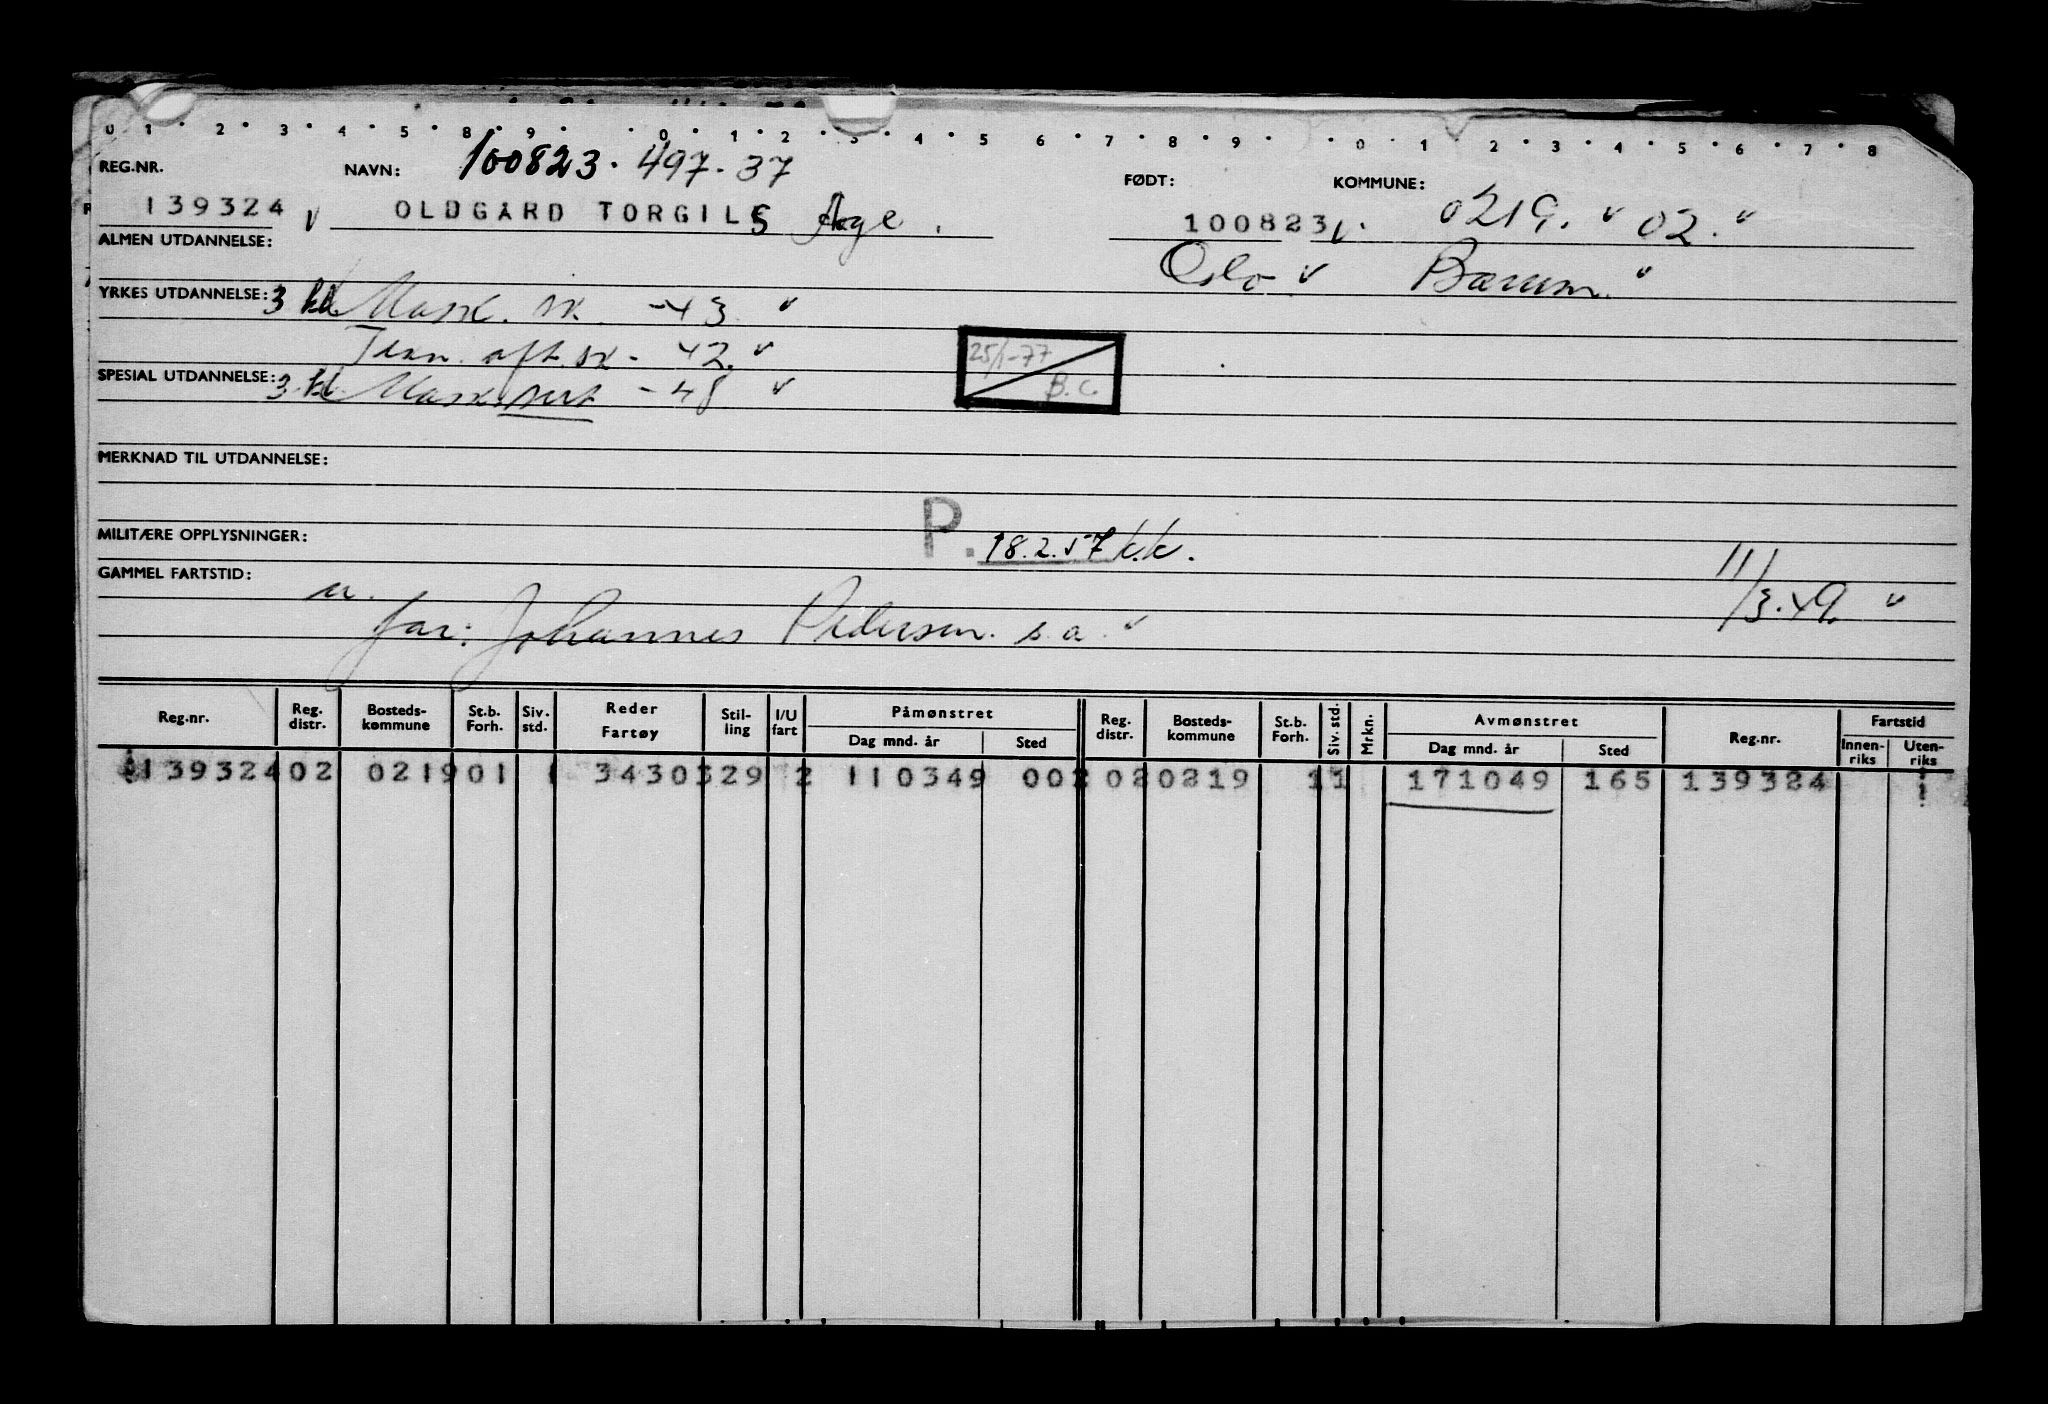 0 1 · 2 · 3 · 4 · 5 · 8 · 9 · · 0 · 1 · 2 · 3 · 4 · 5 6 · 7 · 8 · 9 · · 0 · 1 · 2 · 3 · 4 · 5 · 6 · 7 · 8
REG.NR. NAVN: 100823. 497. 37 FØDT: KOMMUNE:
139324 v OLDGARD TORGILS Aage. 100823 v. 0219. v 02. v
ALMEN UTDANNELSE: Oslo v Bærum. v
YRKES UTDANNELSE: 3 kl Mask. sk. -43 v
Tekn. aft. sk - 42. v
25/1-77
B.C.
SPESIAL UTDANNELSE: 3 kl Mask. sert -48 v
MERKNAD TIL UTDANNELSE:
MILITÆRE OPPLYSNINGER: P. 18.2.57 k.k.
GAMMEL FARTSTID: u. 11/3.49. v
far: Johannes Pedersen. s.a. v
Reg.nr. Reg. distr. Bosteds-kommune St.b. Forh. Siv. std. Reder Fartøy Stil-ling I/U fart Påmønstret Dag mnd. år Sted Reg. distr. Bosteds-kommune St.b. Forh. Siv. std. Mrkn. Avmønstret Dag mnd. år Sted Reg.nr. Fartstid Innen-riks Uten-riks
139324 02 0219 01 1 3430 329 2 110349 002 02 0219 1 1 171049 165 139324